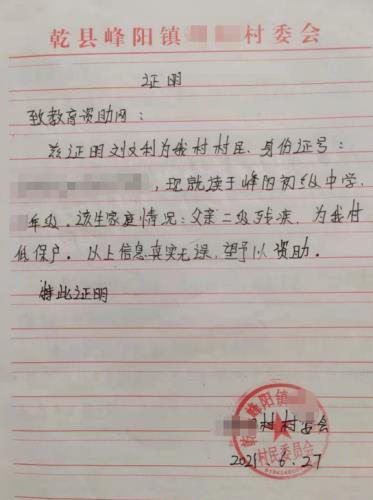 乾县峰阳镇 村委会
证明
致教育资助网：
兹证明刘文利为我村村民，身份证号：
，现就读于峰阳初级中学，
年级。该生家庭情况：父亲二级残疾，为我村
低保户。以上信息真实无误，望予以资助。
特此证明
乾县峰阳镇
村村委会
村民委员会
2021.6.27